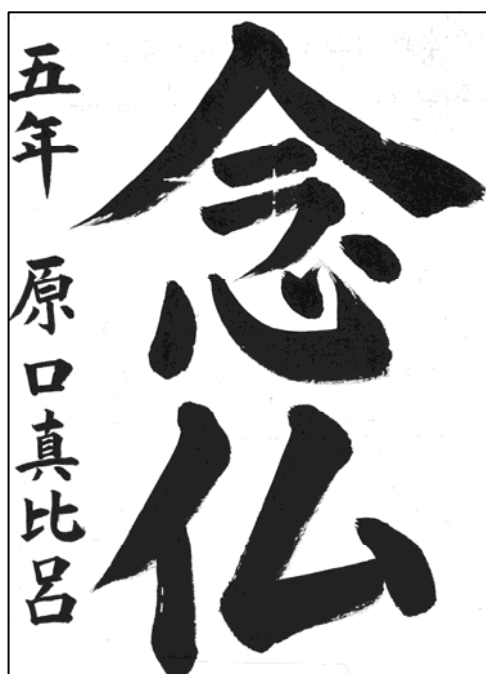 念仏
五年 原口真比呂